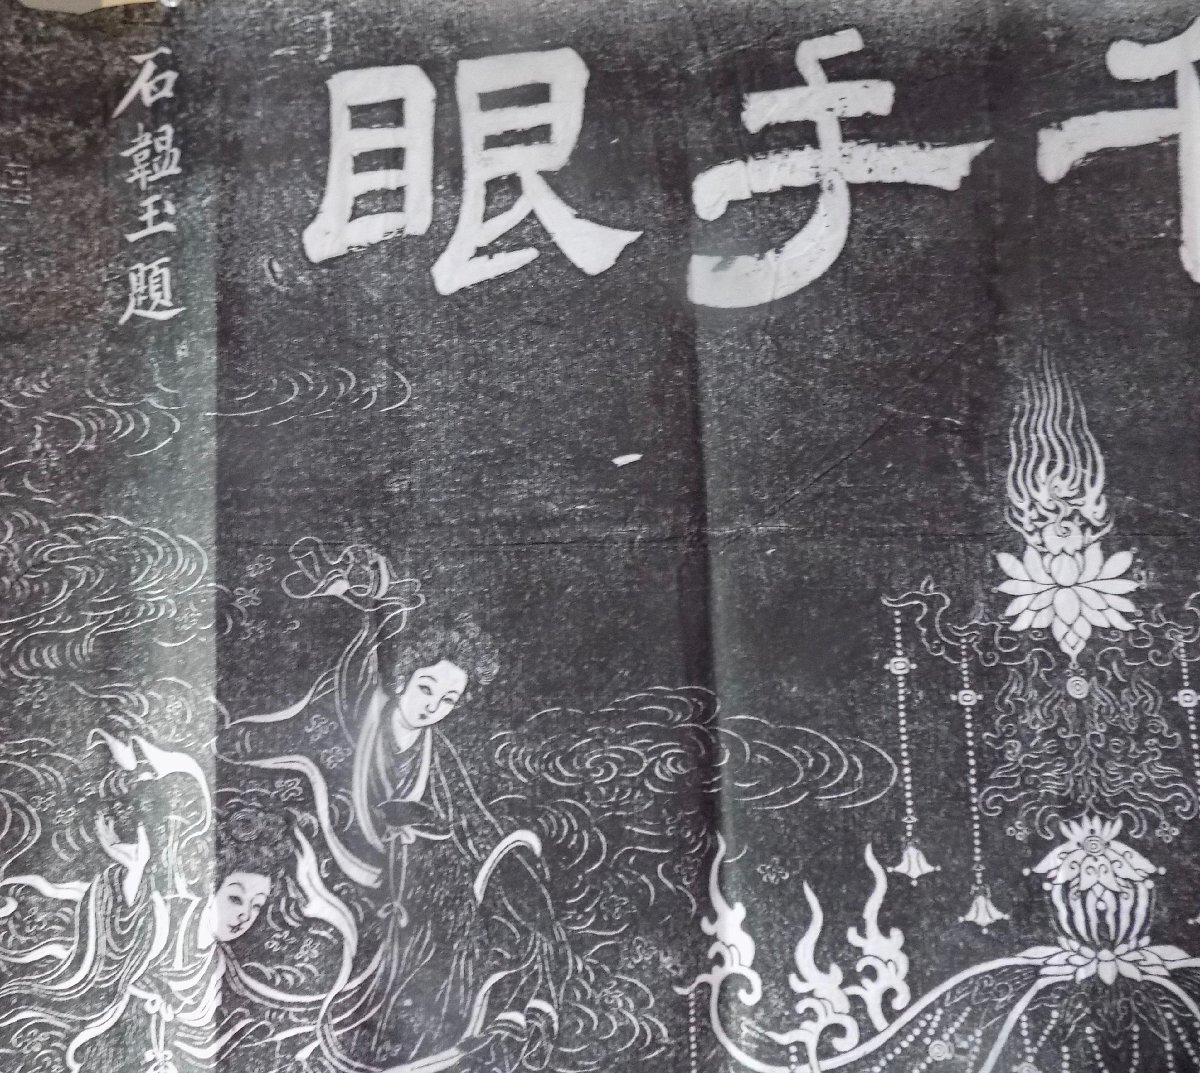 千手眼
石韞玉題